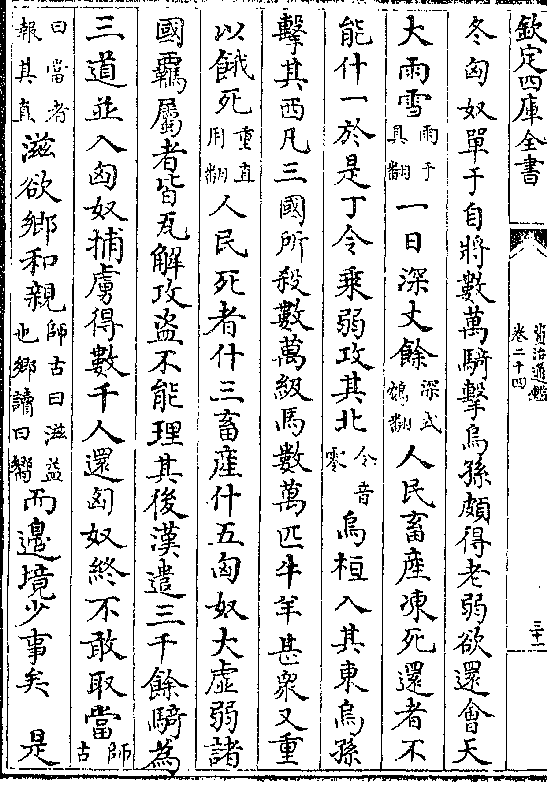 欽定四庫全書
資治通鑑
卷二十四
三十一
冬匈奴單于自將數萬騎擊烏孫頗得老弱欲還會天
大雨雪雨于具翻一日深丈餘深式鴆翻人民畜產凍死還者不
能什一於是丁令乘弱攻其北令音零烏桓入其東烏孫
擊其西凡三國所殺數萬級馬數萬匹牛羊甚衆又重
以餓死重直用翻人民死者什三畜產什五匈奴大虛弱諸
國羈屬者皆瓦解攻盜不能理其後漢遣三千餘騎為
三道並入匈奴捕虜得數千人還匈奴終不敢取當師古
曰當者報其直滋欲鄉和親師古曰滋益也鄉讀曰嚮而邊境少事矣 是